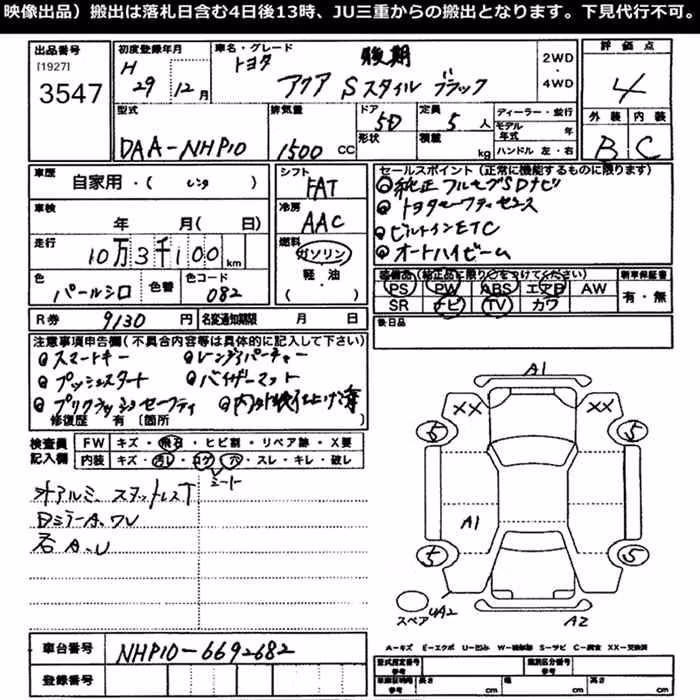 映像出品）搬出は落札日含む4日後13時、JU三重からの搬出となります。下見代行不可。
出品番号
[1927]
3547
初度登録年月
H 29 12月
車名・グレード
トヨタ 後期
アクア Sスタイル ブラック
2WD
・
4WD
評価点
4
外装 内装
B C
型式
DAA-NHP10
排気量
1500 CC
ドア
5D
形状
定員
5人
積載
kg
ディーラー・並行
モデル年式 年
ハンドル 左・右
車歴
自家用・( レンタ )
車検
年 月( 日)
走行
10万3千100km
色
パールシロ
色替
色コード
082
シフト
FAT
冷房
AAC
燃料
ガソリン
・
軽・油
( )
セールスポイント（正常に機能するものに限ります）
純正フルセグSDナビ
トヨタセーフティセンス
ビルトインETC
オートハイビーム
装備品（純正品に限り○をつけてください）
PS PW ABS エアB AW
SR ナビ TV カワ
新車保証書
有・無
後日品
R券 9130円
名変通知期限 月 日
注意事項申告欄（不具合内容等は具体的に記入して下さい）
スマートキー
レンタアパーチャー
プッシュスタート
バイザーマット
プリクラッシュセーフティ
内外装仕上げ済
修復歴 有 〔箇所 〕
検査員
記入欄
FW キズ・飛石・ヒビ割・リペア跡・X要
内装 キズ・汚レ・コゲ・穴・スレ・キレ・破レ
シート
オアルミ、スタットレスT
DミラーA、ワU
右A、U
車台番号
NHP10-6692682
登録番号
A1
XX XX
5 5
A1
5 5
UA2
スペア
A2
A－キズ E－エクボ U－凹み W－補修跡 S－サビ C－腐食 XX－交換済
型式指定番号
参考
類別区分番号
参考
車庫証明用
参考
長さ cm
幅 cm
高さ cm